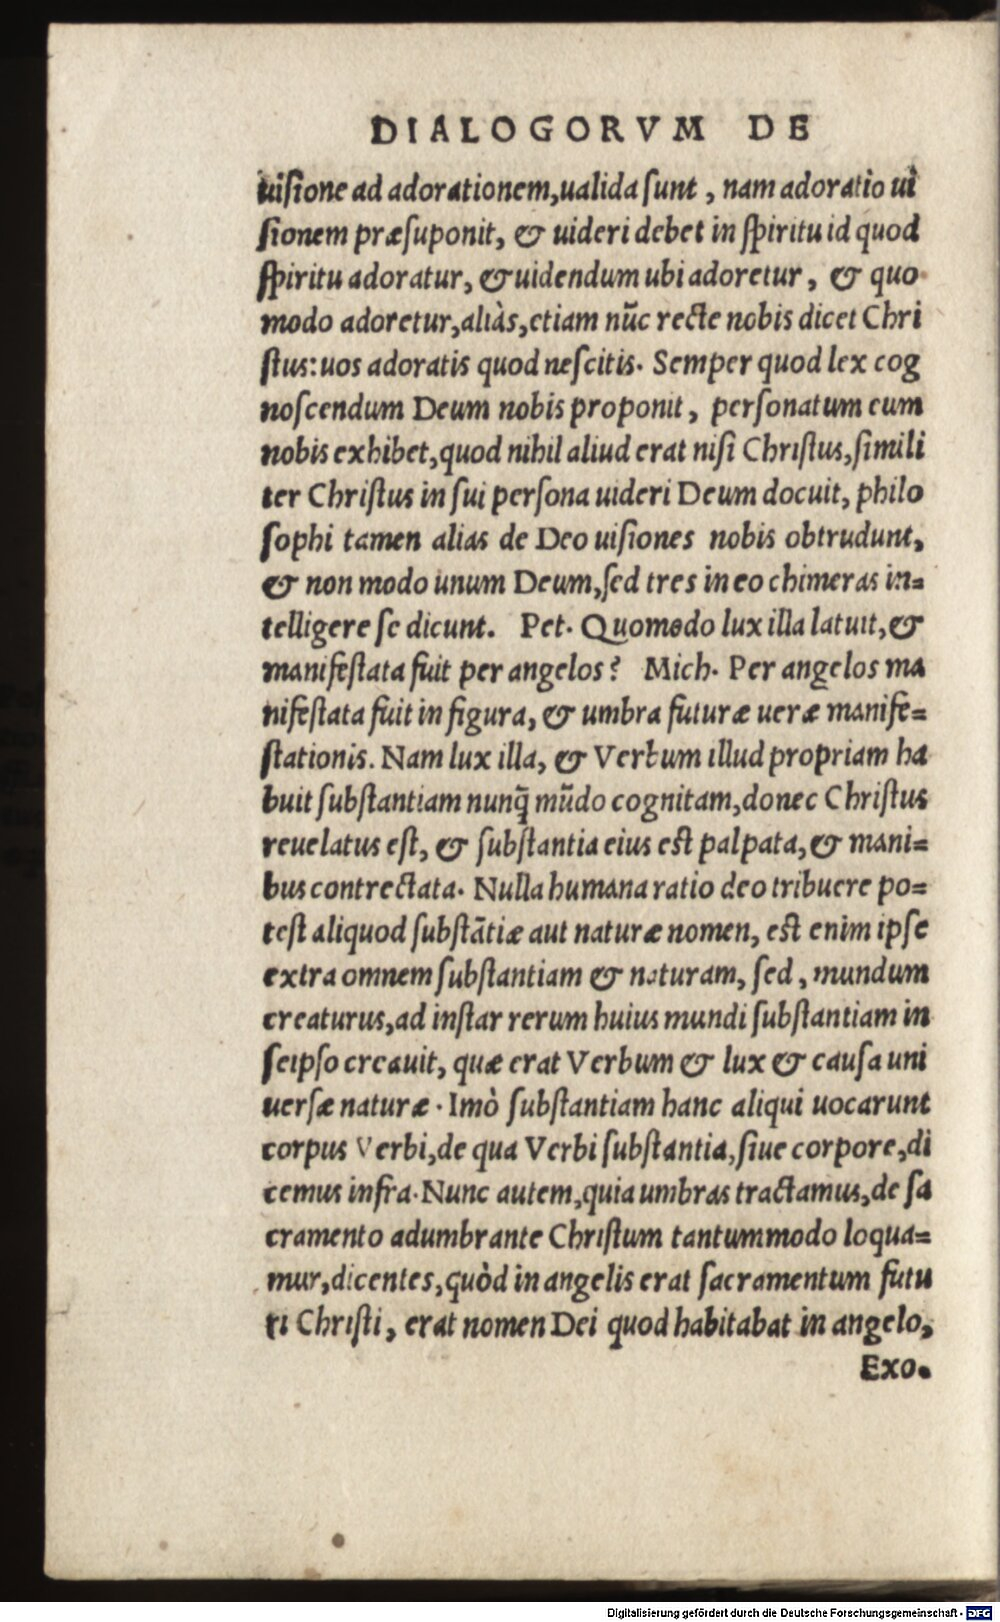 DIALOGORVM DE
uisione ad adorationem,ualida sunt , nam adoratio ui
sionem præsuponit, & uideri debet in spiritu id quod
spiritu adoratur, & uidendum ubi adoretur , & quo
modo adoretur,aliàs,etiam nūc recte nobis dicet Chri
stus: uos adoratis quod nescitis. Semper quod lex cog
noscendum Deum nobis proponit , personatum eum
nobis exhibet,quod nihil aliud erat nisi Christus,simili
ter Christus in sui persona uideri Deum docuit, philo
sophi tamen alias de Deo uisiones nobis obtrudunt,
& non modo unum Deum,sed tres in eo chimeras in=
telligere se dicunt. Pet. Quomodo lux illa latuit,&
manifestata fuit per angelos? Mich. Per angelos ma
nifestata fuit in figura, & umbra futuræ ueræ manife=
stationis. Nam lux illa, & Verbum illud propriam ha
buit substantiam nunq̃ mūdo cognitam,donec Christus
reuelatus est, & substantia eius est palpata,& mani=
bus contrectata. Nulla humana ratio deo tribuere po=
test aliquod substātiæ aut naturæ nomen, est enim ipse
extra omnem substantiam & naturam, sed , mundum
creaturus,ad instar rerum huius mundi substantiam in
seipso creauit, quæ erat Verbum & lux & causa uni
uersæ naturæ . Imò substantiam hanc aliqui uocarunt
corpus Verbi,de qua Verbi substantia,siue corpore,di
cemus infra. Nunc autem,quia umbras tractamus,de sa
cramento adumbrante Christum tantummodo loqua=
mur,dicentes,quòd in angelis erat sacramentum futu
ri Christi , erat nomen Dei quod habitabat in angelo,
Exo.
Digitalisierung gefördert durch die Deutsche Forschungsgemeinschaft - DFG